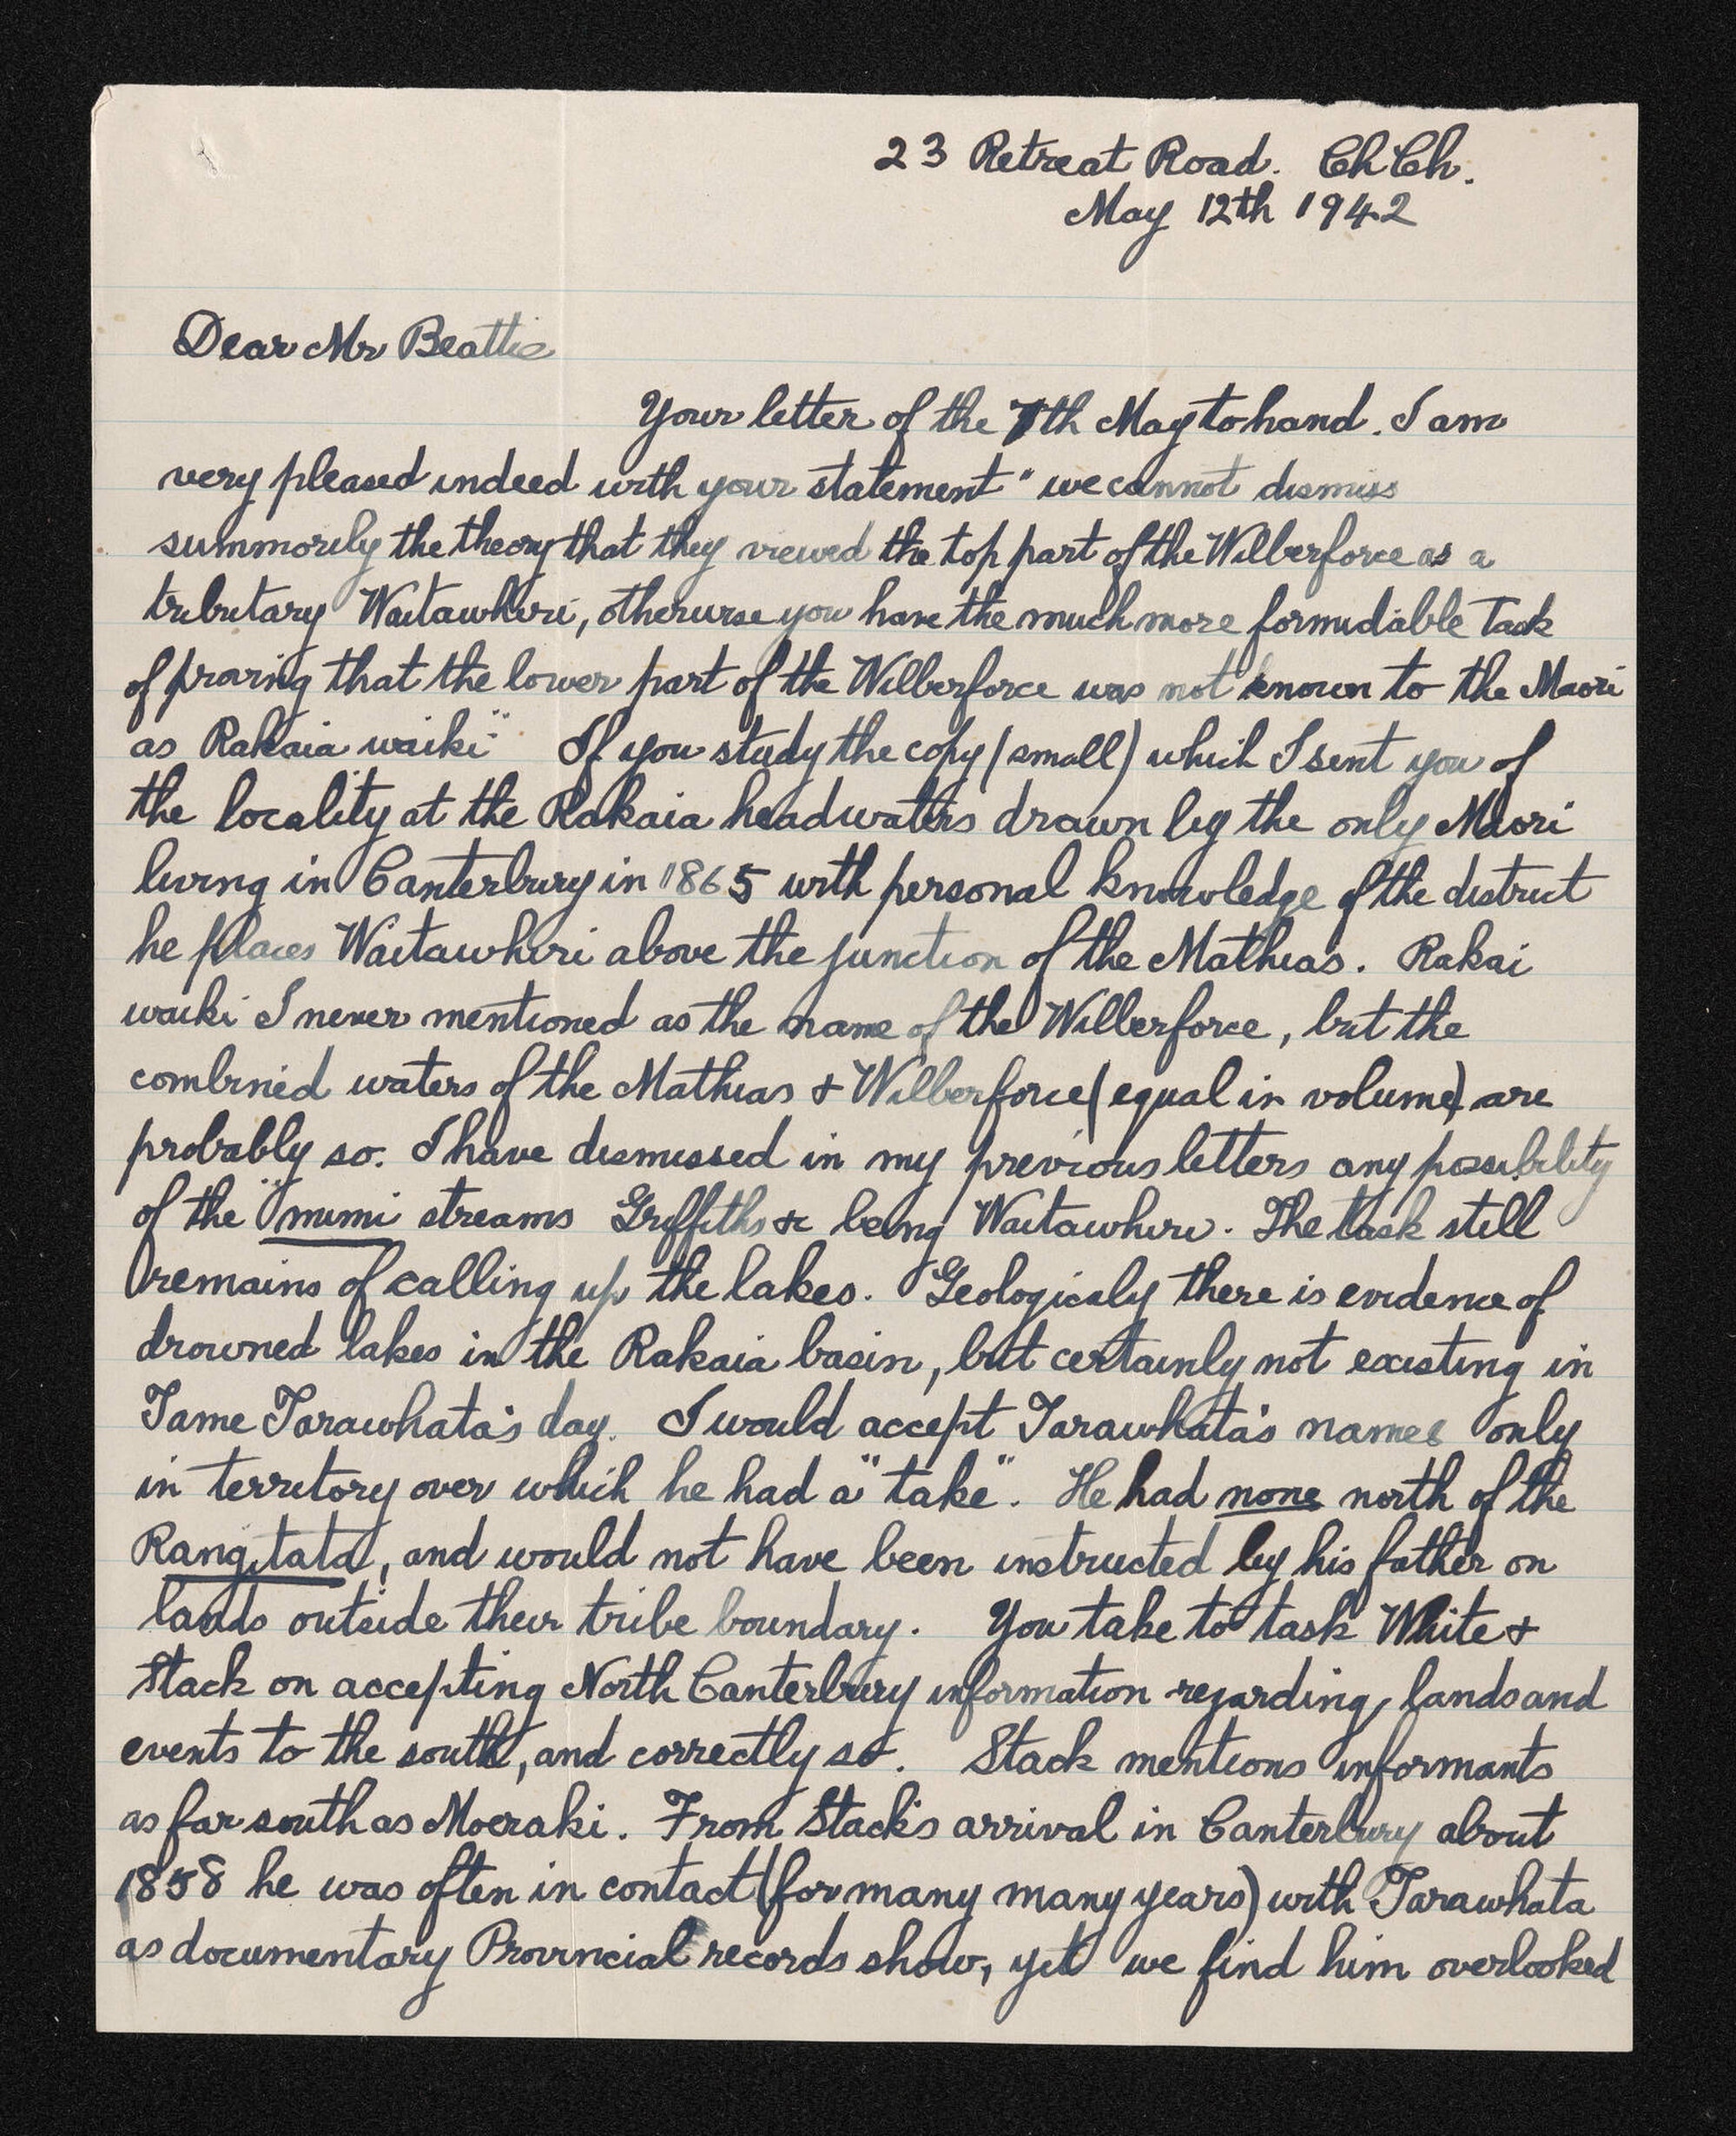 23 Retreat Road. ChCh.
May 12th 1942
Dear Mr Beattie
Your letter of the 7th May to hand. I am
very pleased indeed with your statement "we cannot dismiss
summorily the theory that they viewed the top part of the Wilberforce as a
tributary Waitawhiri, otherwise you have the much more formidable Task
of proving that the lower part of the Wilberforce was not known to the Maori
as Rakaia waiki" If you study the copy (small) which I sent you of
the locality at the Rakaia headwaters drawn by the only Maori
living in Canterbury in 1865 with personal knowledge of the district
he places Waitawhiri above the junction of the Mathias. Rakai
waiki I never mentioned as the name of the Wilberforce, but the
combined waters of the Mathias & Wilberforce (equal in volume) are
probably so. I have dismissed in my previous letters any possibility
of the "mimi streams Griffiths &c being Waitawhiri. The task still
remains of calling up the lakes. Geologicaly there is evidence of
drowned lakes in the Rakaia basin, but certainly not existing in
Tame Tarawhata's day. I would accept Tarawhata's names only
in territory over which he had a "take". He had none north of the
Rangitata, and would not have been instructed by his father on
lands outside their tribe boundary. You take to task White &
Stack on accepting North Canterbury information regarding, lands and
events to the south, and correctly so. Stack mentions informants
as far south as Moeraki. From Stack's arrival in Canterbury about
1858 he was often in contact (for many many years) with Tarawhata
as documentary Provincial records show, yet we find him overlooked